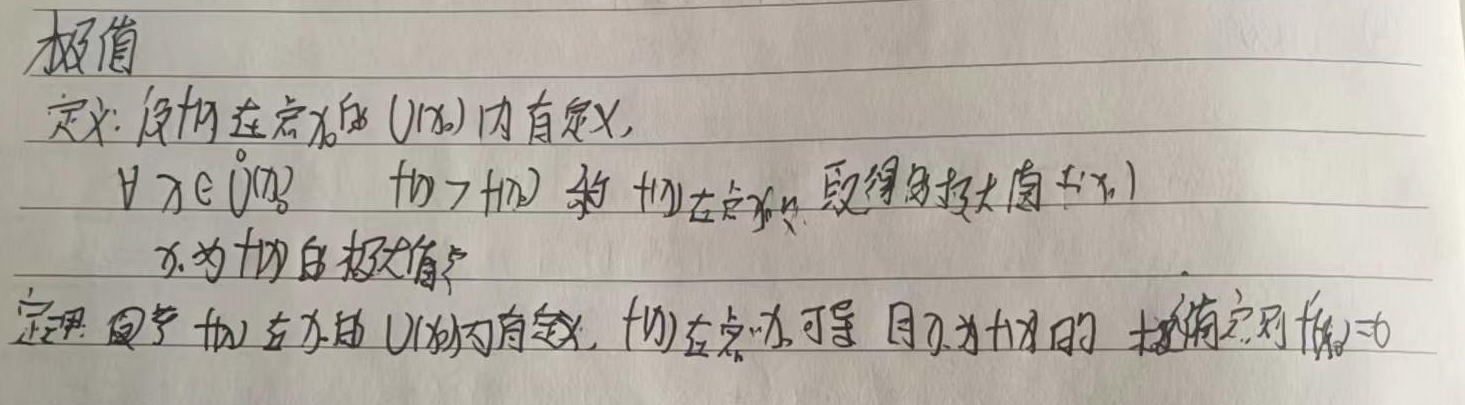 极值
定义: 设f(x)在点x₀的U(x₀)内有定义,
∀ x∈Ů(x₀) f(x)>f(x₀) 称 f(x)在点x₀处 取得极大值 f(x₀)
x₀为f(x)的极大值点
定理: 函数 f(x) 在x₀的 U(x₀)内有定义, f(x)在点x₀可导 且x₀为f(x)的 极值点则 f'(x₀)=0